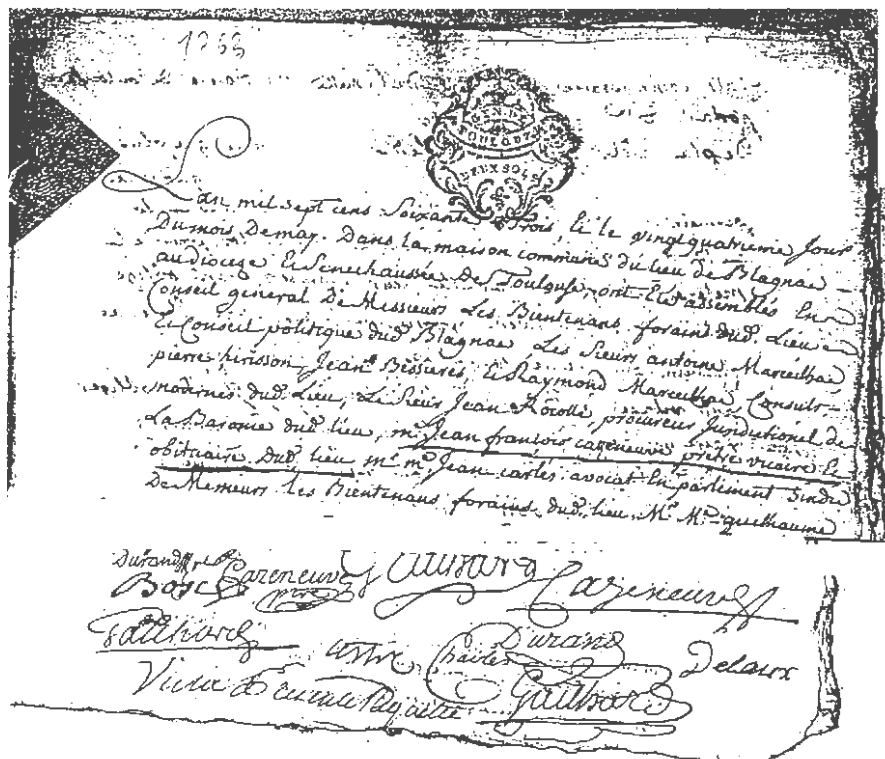 1763
GEN. DE
TOULOUZE
DEUX SOLS
Lan mil sept cens Soixante Trois, & le vingt quatrieme Jour
Du mois Demay. Dans la maison commune du lieu de Blagnac
au dioceze & Senechaussée De Toulouse, ont Eté assemblés En
Conseil general De Messieurs Les Bientenans forains dud. Lieu
& Conseil politique dud. Blagnac Les Sieurs antoine Marceilhac
pierre hirisson, Jean Bessieres, & Raymond Marceilhac Consuls
modernes dud. Lieu, Le Sieur Jean procureur Jurisdictionel de
La Baronie dud. lieu, me. Jean francois cazeneuve prêtre vicaire &
obituaire Dud. lieu me. me. Jean carles avocat En parlement Sindic
De Messieurs les Bientenans forains dud. lieu, Me. Me. guilhaume
Durand Cazeneuve Gailhard Cazeneuve
Bosc
Gailhard astre Charles Durand Delaux
Gailhard